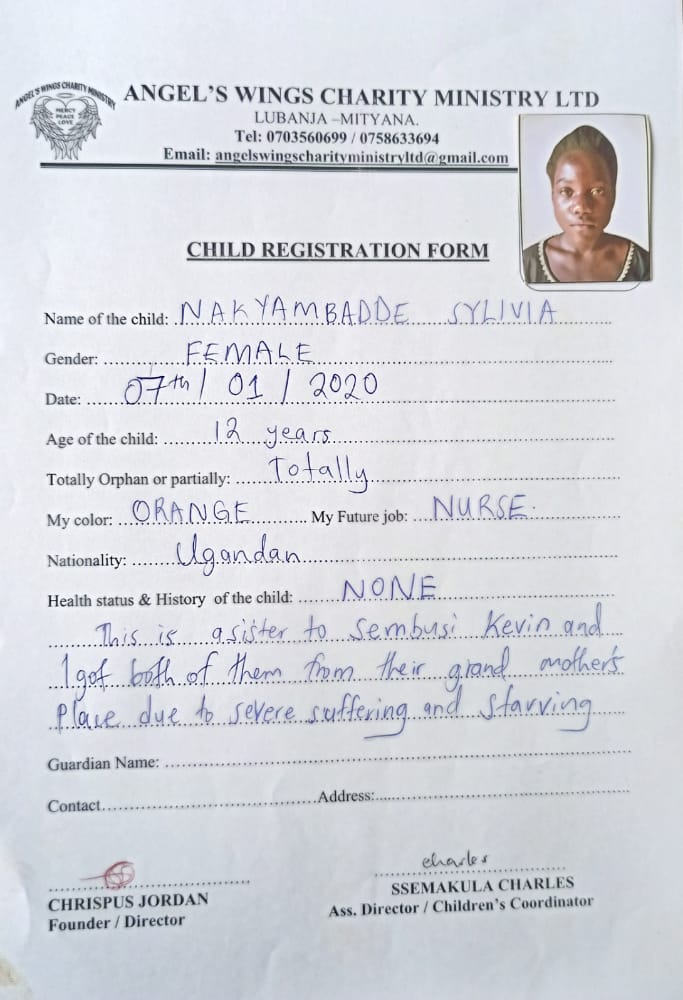 ANGEL'S WINGS CHARITY MINISTRY
MERCY
PEACE
LOVE
ANGEL'S WINGS CHARITY MINISTRY LTD
LUBANJA –MITYANA.
Tel: 0703560699 / 0758633694
Email: angelswingscharityministryltd@gmail.com
CHILD REGISTRATION FORM
Name of the child: NAKYAMBADDE SYLIVIA
Gender: FEMALE
Date: 07th / 01 / 2020
Age of the child: 12 years
Totally Orphan or partially: Totally
My color: ORANGE My Future job: NURSE.
Nationality: Ugandan
Health status & History of the child: NONE
This is a sister to Sembusi Kevin and
I got both of them from their grand mother's
place due to severe suffering and starving
Guardian Name:
Contact Address:
charles
CHRISPUS JORDAN SSEMAKULA CHARLES
Founder / Director Ass. Director / Children's Coordinator